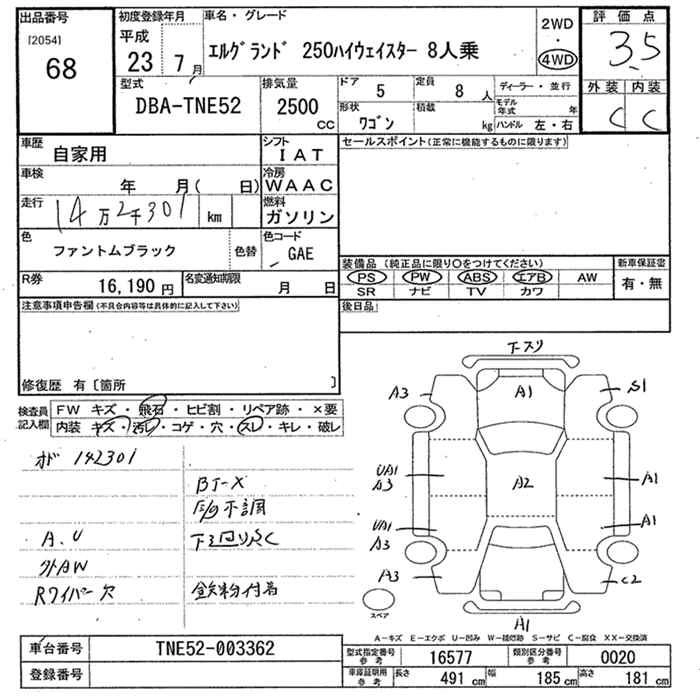 出品番号
[2054]
68
初度登録年月
平成
23 7 月
車名・グレード
エルグランド 250ハイウェイスター 8人乗
2WD
・
4WD
評価点
3.5
外装 内装
C C
型式
DBA-TNE52
排気量
2500
CC
ドア 5
定員 8 人
ディーラー・並行
形状 ワゴン
積載 kg
モデル年式 年
ハンドル 左・右
車歴
自家用
シフト
IAT
セールスポイント(正常に機能するものに限ります)
車検
年 月( 日)
冷房
WAAC
走行
14万2千301 km
燃料
ガソリン
色
ファントムブラック
色替
色コード
GAE
装備品 (純正品に限り○をつけてください)
新車保証書
PS PW ABS エアB AW
有・無
SR ナビ TV カワ
R券
16,190 円
名変通知期限
月 日
後日品
注意事項申告欄(不具合内容等は具体的に記入して下さい)
修復歴 有〔箇所 〕
検査員
記入欄
FW キズ・飛石・ヒビ割・リペア跡・×要
内装 キズ・汚レ・コゲ・穴・スレ・キレ・破レ
オド 142301
BT-X
不調
A.U
外AW
Rワイパー欠
鉄粉付着
下スリ
A3 A1 S1
UA1
A3 A2 A1
UA1 A1
A3
A3 C2
スペア
A1
A-キズ E-エクボ U-凹み W-補修跡 S-サビ C-腐食 XX-交換済
車台番号
TNE52-003362
型式指定番号
参考
16577
類別区分番号
参考
0020
登録番号
車庫証明用
参考
長さ 491 cm
幅 185 cm
高さ 181 cm